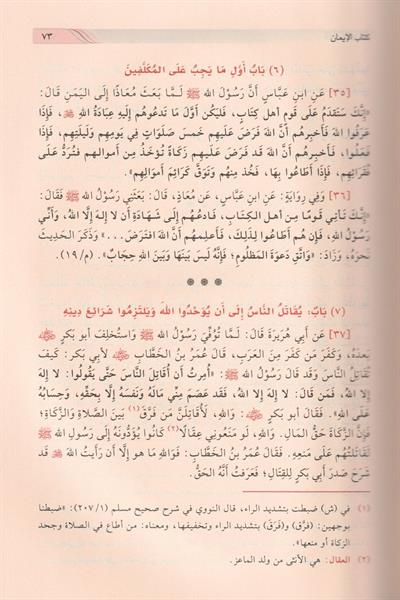 كتاب الإيمان ٧٣
(٦) بَابُ أَوَّلِ مَا يَجِبُ عَلَى المُكَلَّفِينَ
[٣٥] عَنِ ابنِ عبَّاسٍ أَنَّ رَسُولَ اللهِ ﷺ لَـمَّا بَعَثَ مُعَاذًا إلَى اليَمَنِ قَالَ:
«إِنَّكَ سَتَقدَمُ عَلَى قَومٍ أَهلِ كِتَابٍ، فَليَكُن أَوَّلَ مَا تَدعُوهُم إِلَيهِ عِبَادَةُ اللهِ، فَإِذَا
عَرَفُوا اللهَ فَأَخبِرهُم أَنَّ اللهَ فَرَضَ عَلَيهِم خَمسَ صَلَوَاتٍ فِي يَومِهِم وَلَيلَتِهِم، فَإِذَا
فَعَلُوا، فَأَخبِرهُم أَنَّ اللهَ قَد فَرَضَ عَلَيهِم زَكَاةً تُؤخَذُ مِن أَموالِهِم فَتُرَدُّ عَلَى
فُقَرَائِهِم، فَإِذَا أَطَاعُوا بِهَا، فَخُذ مِنهُم وَتَوَقَّ كَرَائِمَ أَموَالِهِم».
[٣٦] وَفِي رِوَايَةٍ: عَنِ ابنِ عبَّاسٍ، عَن مُعَاذٍ، قَالَ: بَعَثَنِي رَسُولُ اللهِ ﷺ فَقَالَ:
«إِنَّكَ تَأتِي قَومًا مِن أَهلِ الكِتَابِ، فَادعُهُم إِلَى شَهَادَةِ أَن لا إلَهَ إلَّا اللهُ، وَأَنِّي
رَسُولُ اللهِ، فَإِن هُم أَطَاعُوا لِذَلِكَ، فَأَعلِمهُم أَنَّ اللهَ افتَرَضَ...» وَذَكَرَ الحَدِيثَ
نَحوَهُ، وَزَادَ: «وَاتَّقِ دَعوَةَ المَظلُومِ؛ فَإِنَّهُ لَيسَ بَينَهَا وَبَينَ اللهِ حِجَابٌ». (م/١٩).
(٧) بَابٌ: يُقَاتَلُ النَّاسُ إلَى أَن يُوَحِّدُوا اللهَ وَيَلتَزِمُوا شَرَائِعَ دِينِهِ
[٣٧] عَن أَبِي هُرَيرَةَ قَالَ: لَـمَّا تُوُفِّيَ رَسُولُ اللهِ ﷺ وَاستُخلِفَ أَبُو بَكرٍ
بَعدَهُ، وَكَفَرَ مَن كَفَرَ مِنَ العَرَبِ، قَالَ عُمَرُ بنُ الخَطَّابِ لأَبِي بَكرٍ: كَيفَ
تُقَاتِلُ النَّاسَ وَقَد قَالَ رَسُولُ اللهِ ﷺ: «أُمِرتُ أَن أُقَاتِلَ النَّاسَ حَتَّى يَقُولُوا: لا إلَهَ
إِلَّا اللهُ، فَمَن قَالَ: لا إلَهَ إلَّا اللهُ، فَقَد عَصَمَ مِنِّي مَالَهُ وَنَفسَهُ إلَّا بِحَقِّهِ، وَحِسَابُهُ
عَلَى اللهِ». فَقَالَ أَبُو بَكرٍ: وَاللهِ، لَأُقَاتِلَنَّ مَن فَرَّقَ(١) بَينَ الصَّلاةِ وَالزَّكَاةِ؛
فَإِنَّ الزَّكَاةَ حَقُّ المَالِ. وَاللهِ، لَو مَنَعُونِي عِقَالًا(٢) كَانُوا يُؤَدُّونَهُ إلَى رَسُولِ اللهِ ﷺ
لَقَاتَلتُهُم عَلَى مَنعِهِ. فَقَالَ عُمَرُ بنُ الخَطَّابِ: فَوَاللهِ مَا هُوَ إلَّا أَن رَأَيتُ اللهَ قَد
شَرَحَ صَدرَ أَبِي بَكرٍ لِلقِتَالِ؛ فَعَرَفتُ أَنَّهُ الحَقُّ.
(١) في (ش) ضبطت بتشديد الراء، قال النووي في شرح صحيح مسلم (٢٠٧/١): «ضبطنا
بوجهين: (فرَّق) و(فَرَقَ) بتشديد الراء وتخفيفها، ومعناه: من أطاع في الصلاة وجحد
الزكاة أو منعها».
(٢) العقال: هي الأنثى من ولد الماعز.